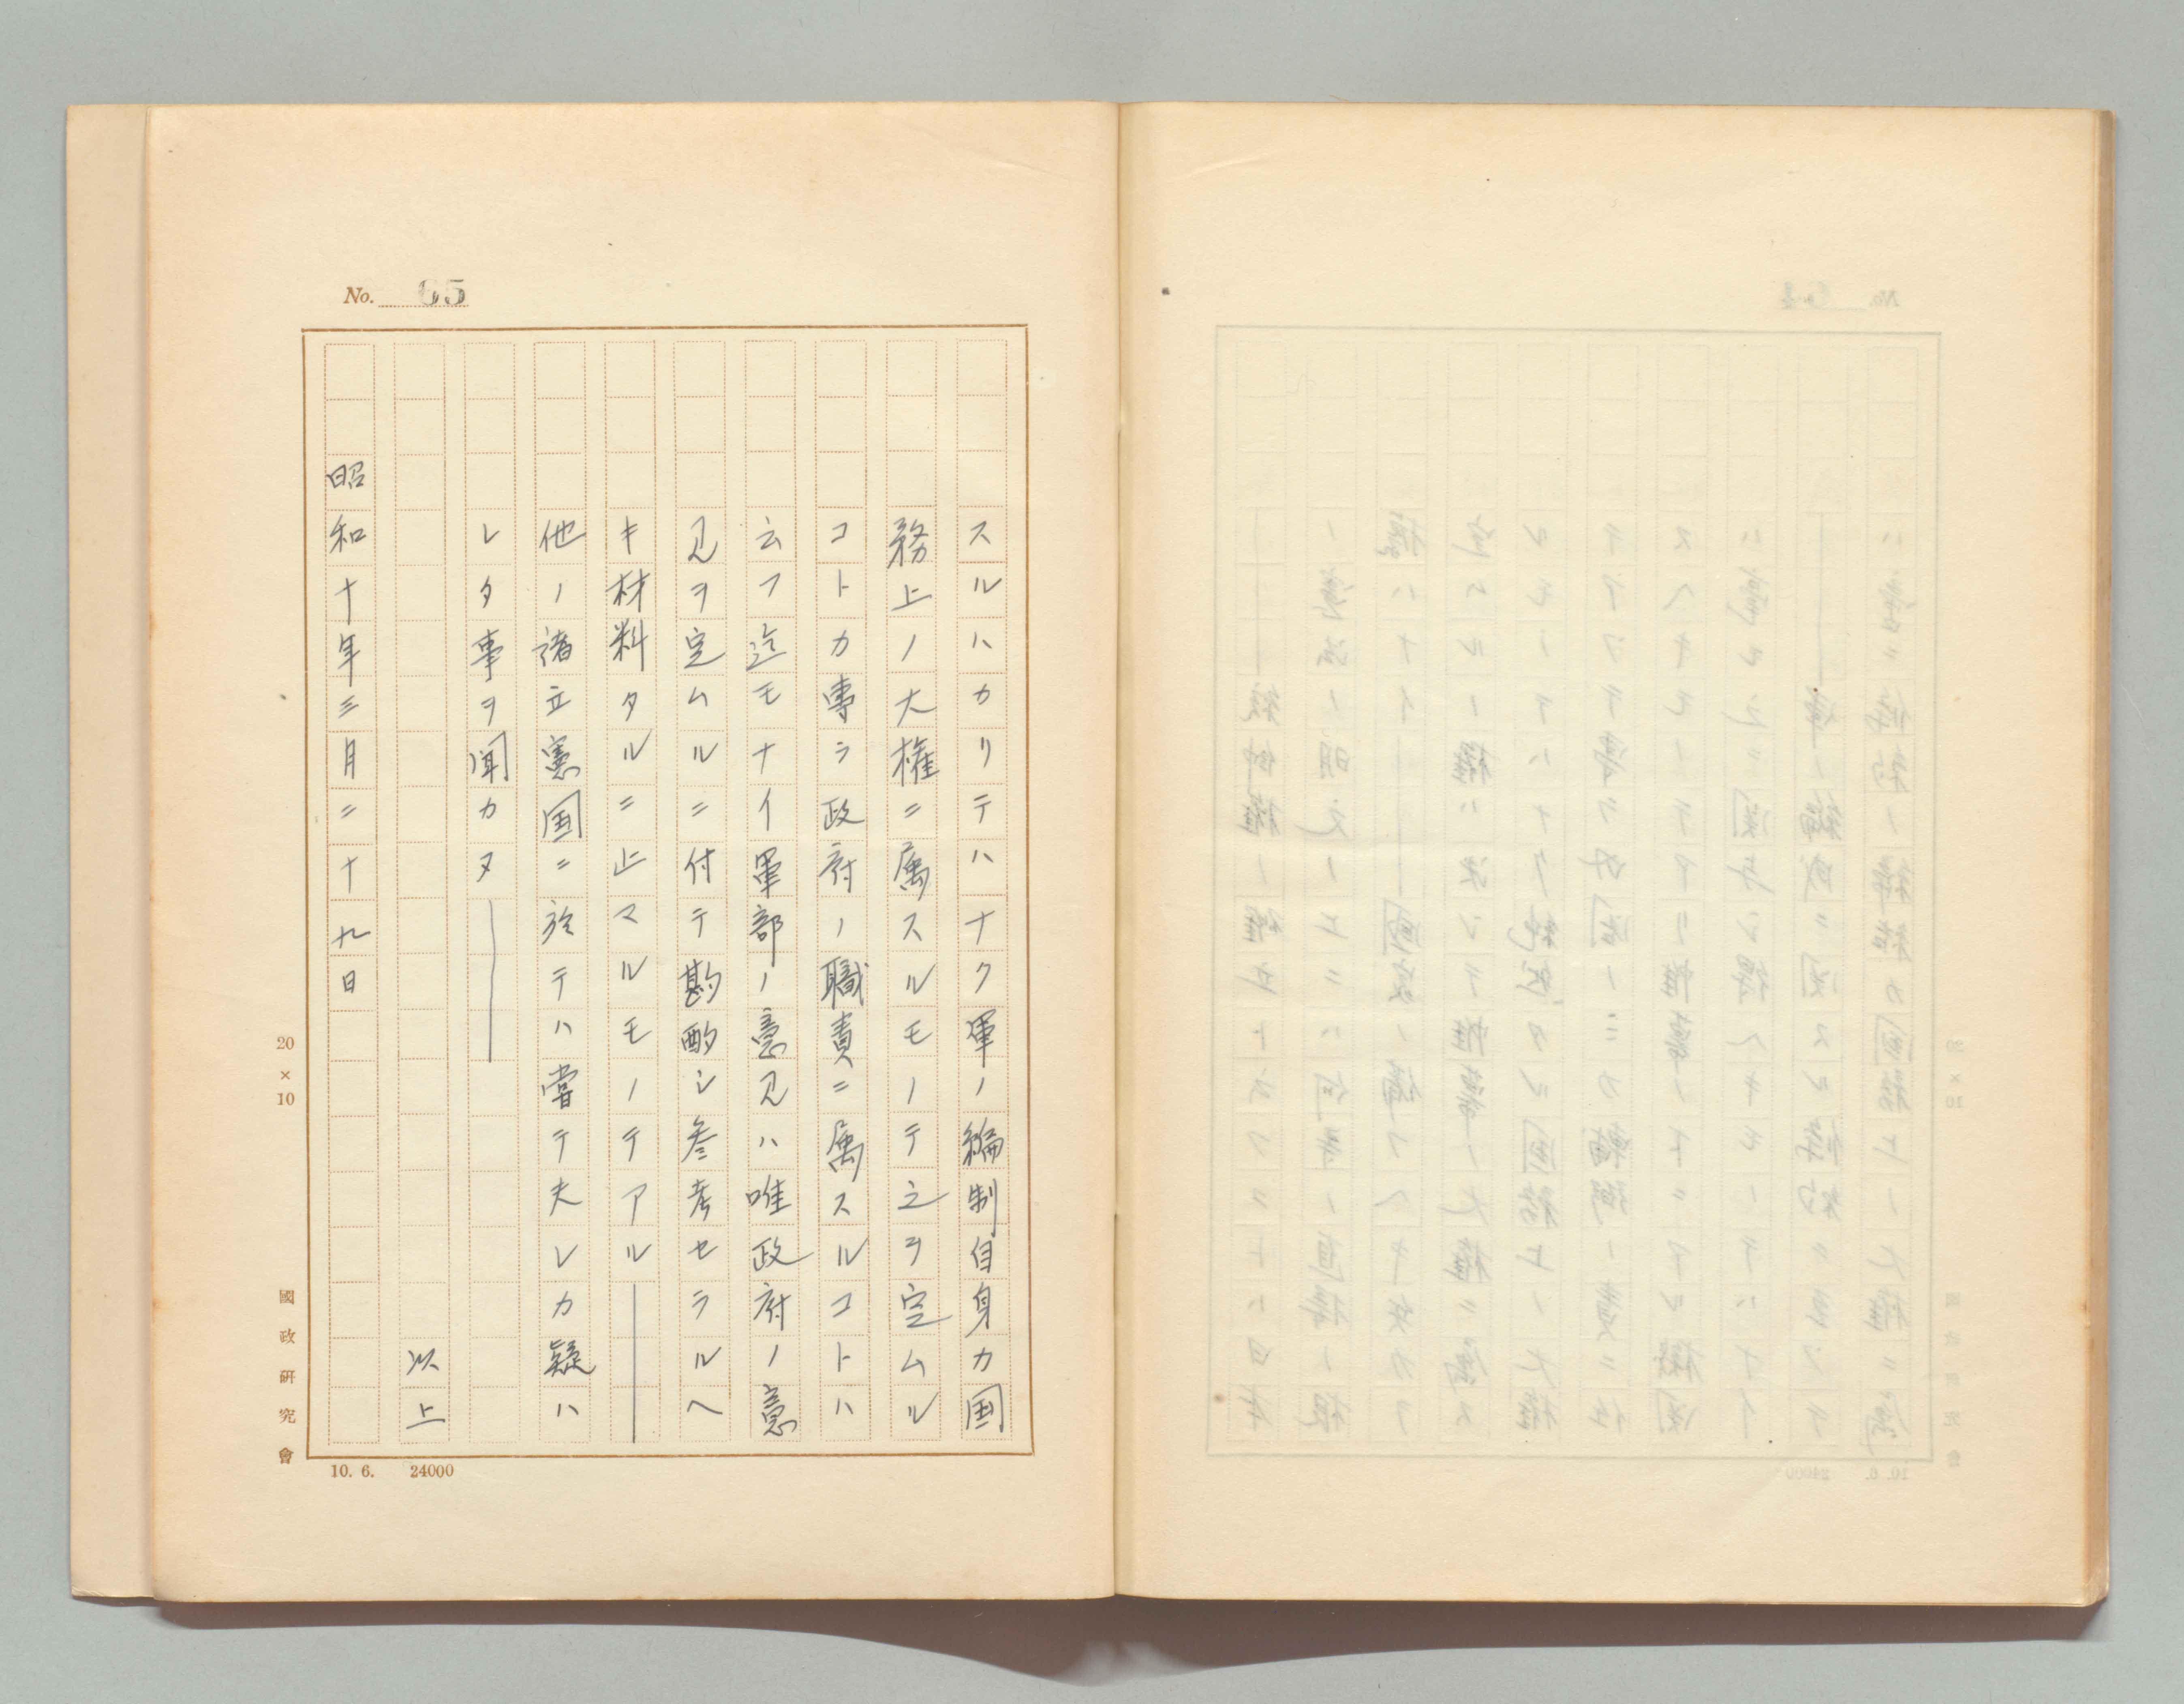 No. 65
スルハカリテハナク軍ノ編制自身カ国
務上ノ大権ニ属スルモノテ之ヲ定ムル
コトカ専ラ政府ノ職責ニ属スルコトハ
云フ迄モナイ軍部ノ意見ハ唯政府ノ意
見ヲ定ムルニ付テ斟酌シ参考セラルヘ
キ材料タルニ止マルモノテアル――
他ノ諸立憲国ニ於テハ嘗テ夫レカ疑ハ
レタ事ヲ聞カヌ――
以上
昭和十年三月二十九日
20×10
國政研究會
10. 6. 24000